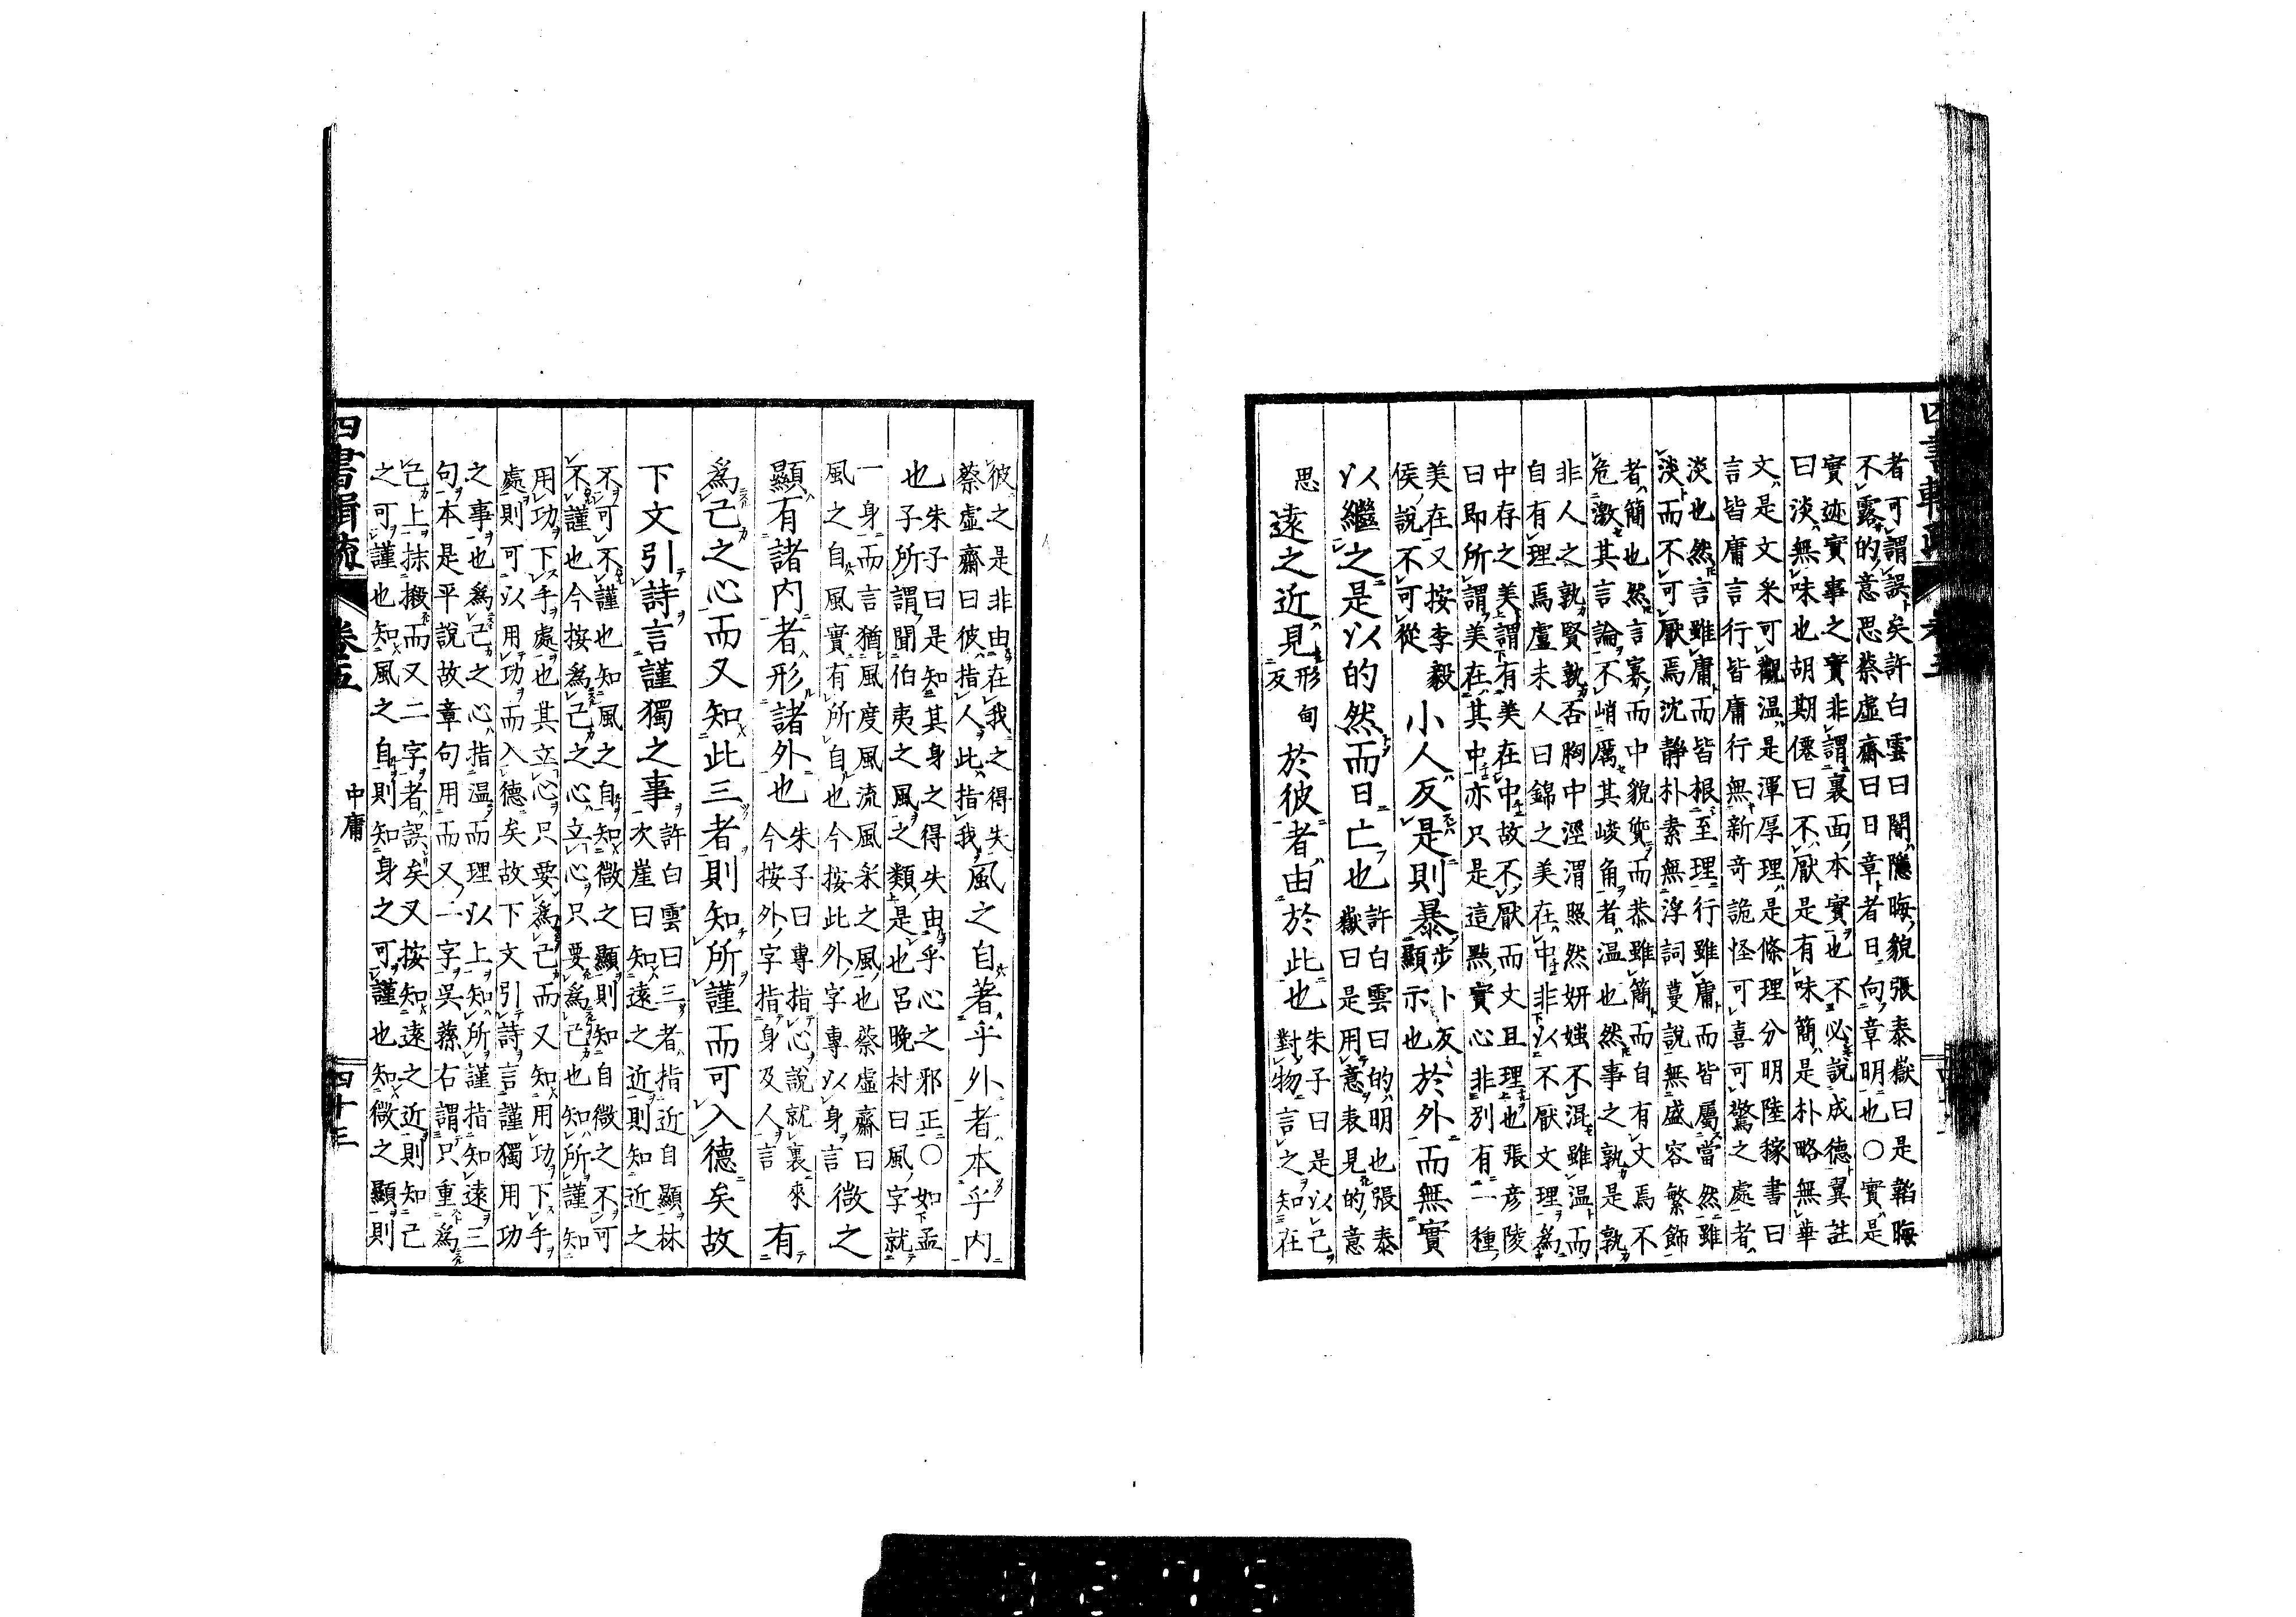 者可謂誤矣許白雲曰闇隱晦貌張泰嶽曰是韜晦
不露的意思蔡虛齋曰日章者日向章明也○實是
實迹實事之實非謂裏面本實也不必說成德翼註
曰淡無味也胡期僊曰不厭是有味簡是朴略無華
文是文釆可觀温是渾厚理是條理分明陸稼書曰
言皆庸言行皆庸行無新奇詭怪可喜可驚之處者
淡也然言雖庸而皆根至理行雖庸而皆屬當然雖
淡而不可厭焉沈靜朴素無浮詞蔓說無盛容繁飾
者簡也然言寡而中貌質而恭雖簡而自有文焉不
危激其言論不峭厲其峻角者温也然事之孰是孰
非人之孰賢孰否胸中涇渭照然妍媸不混雖温而
自有理焉盧未人曰錦之美在中非以不厭文理爲
中存之美謂有美在中故不厭而文且理也張彦陵
曰即所謂美在其中亦只是這點實心非別有一種
美在又按李毅
侯說不可從
小人反是則暴步卜反顯示也於外而無實
以繼之是以的然而日亡也許白雲曰的明也張泰
嶽曰是用意表見的意
思
遠之近見形甸反於彼者由於此也朱子曰是以己
對物言之知在
彼之是非由在我之得失
蔡虛齋曰彼指人此指我
風之自著乎外者本乎内
也朱子曰是知其身之得失由乎心之邪正○如孟
子所謂聞伯夷之風之類是也呂晩村曰風字就
一身而言猶風度風流風采之風也蔡虛齋曰
風之自風實有所自也今按此外字專以身言
微之
顯有諸内者形諸外也朱子曰專指心說就裏來
今按外字指身及人言
有
爲己之心而又知此三者則知所謹而可入德矣故
下文引詩言謹獨之事許白雲曰三者指近自顯林
次崖曰知遠之近則知近之
不可不謹也知風之自知微之顯則知自微之不可
不謹也今按爲己之心立心只要爲己也知所謹知
用功下手處也其立心只要爲己而又知用功下手
處則可以用功而入德矣故下文引詩言謹獨用功
之事也爲己之心指温而理以上知所謹指知遠三
句本是平說故章句用而又二字吳蓀右謂只重爲
己上抹搬而又二字者誤矣又按知遠之近則知己
之可謹也知風之自則知身之可謹也知微之顯則
四書輯疏
卷五
中庸
四十三